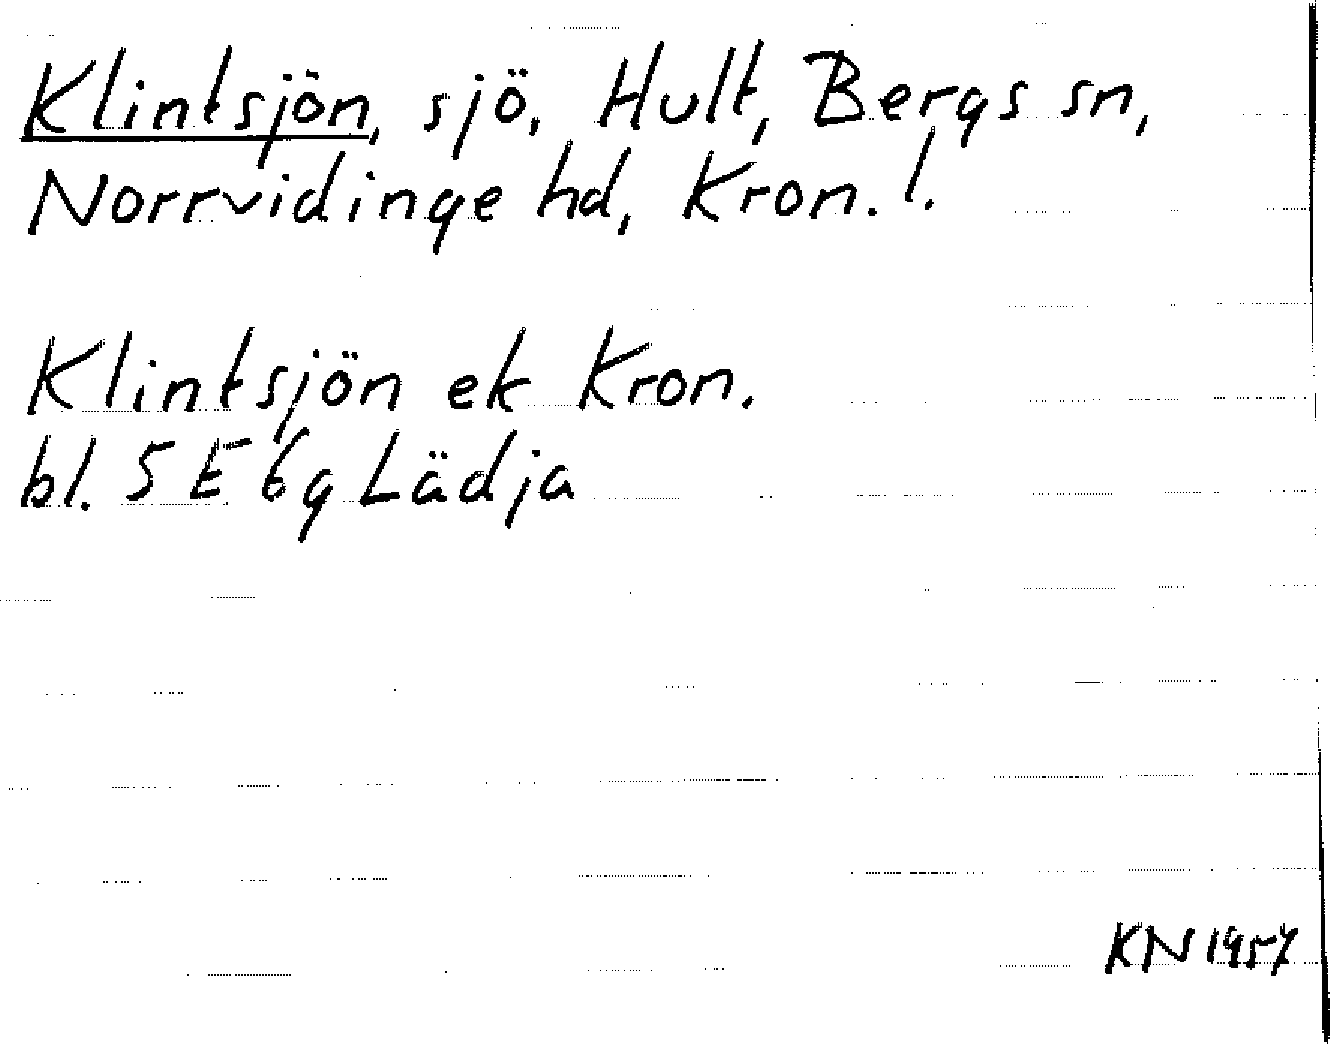 Klintsjön, sjö, Hult, Bergs sn,
Norrvidinge hd, Kron. l.
Klintsjön ek Kron.
bl. 5 E 6g Lädja
KN 1957